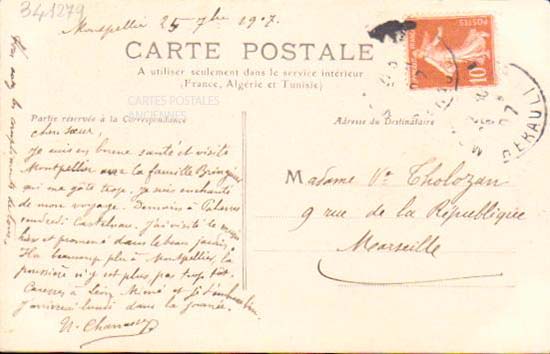 341279
Montpellier 25 7bre 1907.
CARTE POSTALE
A utiliser seulement dans le service intérieur
(France, Algérie et Tunisie)
CARTES POSTALES
ANCIENNES
Partie réservée à la Correspondance
Adresse du Destinataire
chère sœur,
Je suis en bonne santé et visite
Montpellier avec la famille
qui me gâte trop. Je suis enchanté
de mon voyage. Demain à
vendredi Castelnau. J'ai visité le
hier et promené dans le beau jardin.
M'a beaucoup plu à Montpellier, la
poussière n'y est plus pas trop
Caresses à Léon, Mimi et
J'arriverai lundi dans la journée.
Madame Ve Tholozan
9 rue de la République
Marseille
10
HERAULT